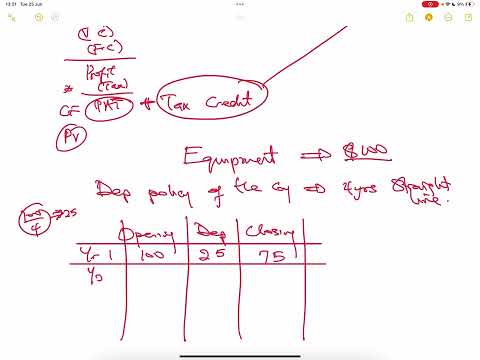 13:01 Tue 25 Jun
9%
(V C)
(F.C)
Profit
* (Tax)
CF PAT + Tax Credit
PV
Equipment ⇒ $100
Dep policy of the Coy ⇒ 4yrs Straight line.
100/4 ⇒ 25
Opening Dep Closing
Yr 1 100 25 75